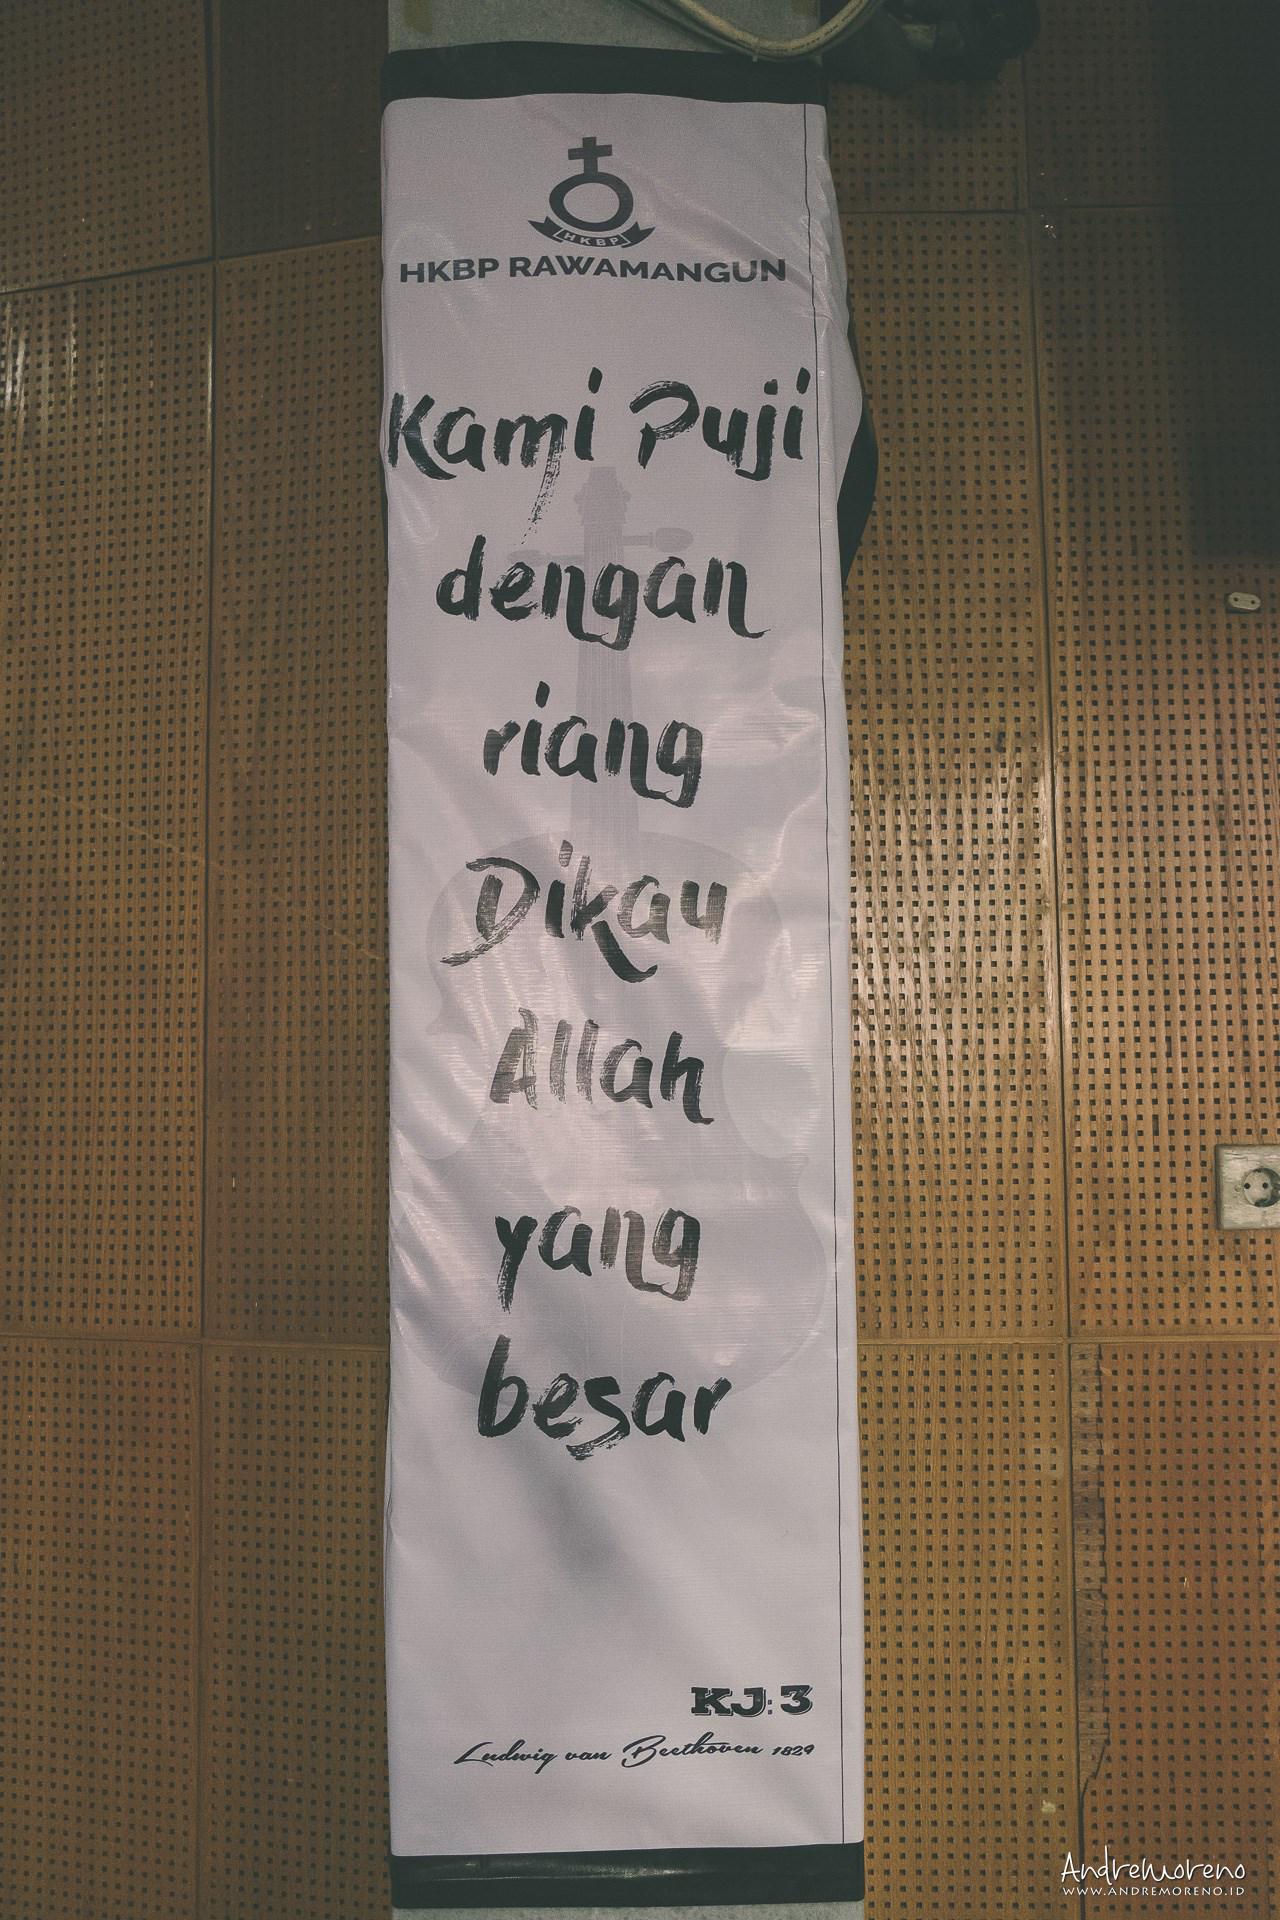 HKBP
HKBP RAWAMANGUN
Kami Puji
dengan
riang
Dikau
Allah
yang
besar
KJ: 3
Ludwig van Beethoven 1829
AndreMoreno
WWW.ANDREMORENO.ID